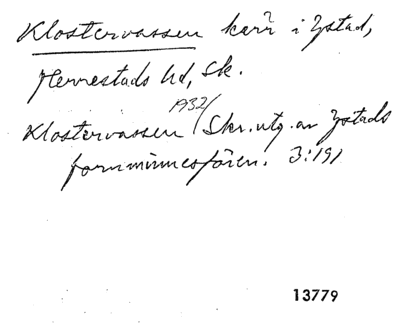 Klostervassen kärr i Ystad,
Herrestads hd, Sk.
Klostervassen 1932/Skr. utg. av Ystads
fornminnesfören. 3:191
13779